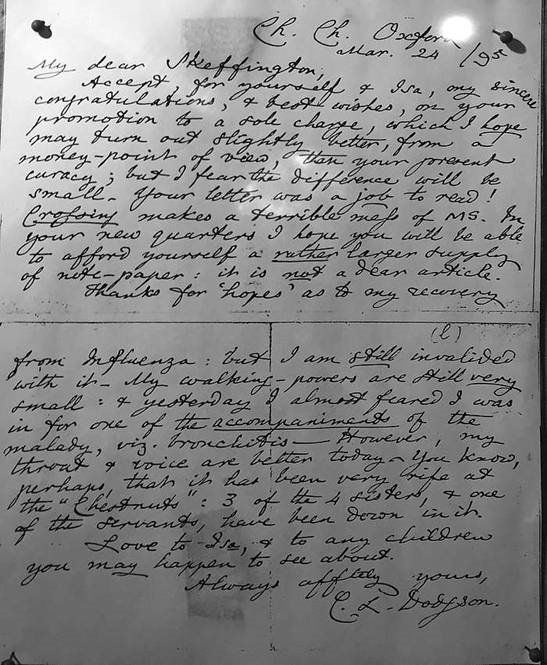 Ch. Ch. Oxford
Mar. 24 /95
My dear Skeffington,
Accept for yourself & Isa, my sincere
congratulations, & best wishes, on your
promotion to a sole charge, which I hope
may turn out slightly better, from a
money-point of view, than your present
curacy; but I fear the difference will be
small. Your letter was a job to read!
Crossing makes a terrible mess of MS. In
your new quarters I hope you will be able
to afford yourself a rather larger supply
of note-paper: it is not a dear article.
Thanks for 'hopes' as to my recovery
from Influenza: but I am still invalided
with it. My walking-powers are still very
small: & yesterday I almost feared I was
in for one of the accompaniments of the
malady, viz. bronchitis — However, my
throat & voice are better today. You know,
perhaps, that it has been very rife at
the "Chestnuts": 3 of the 4 sisters, & one
of the servants, have been down in it.
Love to Isa, & to any children
you may happen to see about.
Always affftely yours,
C. L. Dodgson.